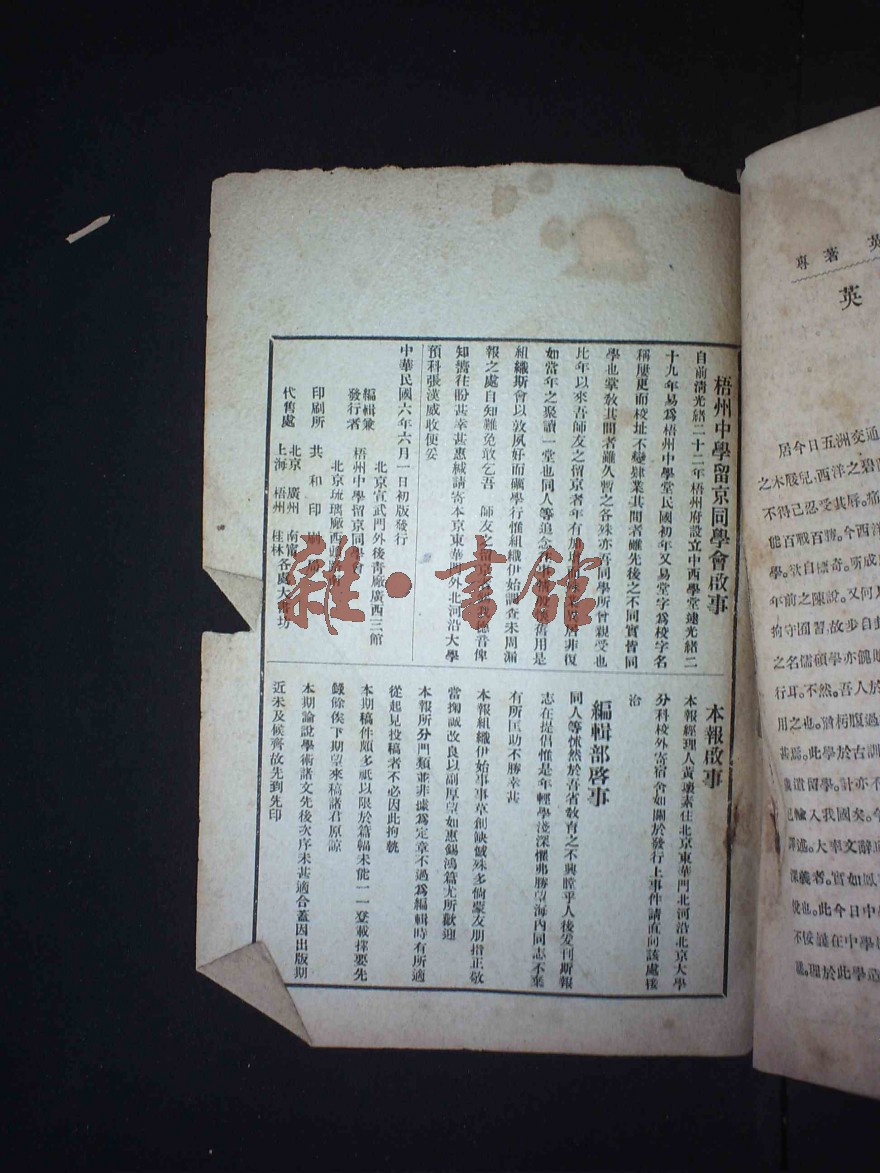 梧州中學留京同學會啟事
自前清光緒二十二年梧州府設立中西學堂逮光緒二
十九年易為梧州中學堂民國初年又易堂字為校字名
稱屢更而校址不變肄業其間者雖先後之不同實皆同
學也掌教其間者雖久暫之各殊亦吾同學所曾親受也
比年以來吾師友之留京者年有加
非復
如當年之聚讀一堂也同人等追念
舊用是
組織斯會以敦夙好而礪學行惟組織伊始調查未周漏
報之處自知難免敢乞吾 師友之留京
德音俾
知濟往盼甚幸甚惠緘請寄本京東華門外北河沿大學
預科張漢威收便妥
中華民國六年六月一日初版發行
編輯兼
發行者
北京宣武門外後青廠廣西三館
梧州中學留京同學會
北京琉璃廠西
印刷所 共和印刷局
代售處
北京 廣州 南甯
上海 梧州 桂林
各處大書坊
本報啟事
本報經理人黃瓌素住北京東華門北河沿北京大學
分科校外寄宿舍如關於發行上事件請直向該處接
洽
編輯部啓事
同人等悚然於吾省教育之不興瞠乎人後爰刊斯報
志在提倡惟是年輕學淺深懼弗勝望海內同志不棄
有所匡助不勝幸甚
本報組織伊始事事草創缺憾殊多倘蒙友朋指正敬
當掬誠改良以副厚望如惠錫鴻篇尤所歡迎
本報所分門類並非據為定章不過為編輯時有所適
從起見投稿者不必因此拘執
本期稿件頗多祇以限於篇幅未能一一登載擇要先
錄餘俟下期望來稿諸君原諒
本期論說學術諸文先後次序未甚適合蓋因出版期
近未及候齊故先到先印
雜·書館
英 著 專
英
居今日五洲交通
之木屐兒西洋之碧
不得已忍受其辱。痛
能百戰百勝。今西洋
學。欿自標奇。所成
年前之陳說。又何
拘守固習。故步自封
之名儒碩學亦
行耳。不然。吾人於
用之也。腹過
甚焉。此學於古訓
遺留學。計亦不
已輸入我國矣。今
譯述。大率文辭
深義者。實如鳳
說也。此今日中學
不佞在中學
誰。理於此學造